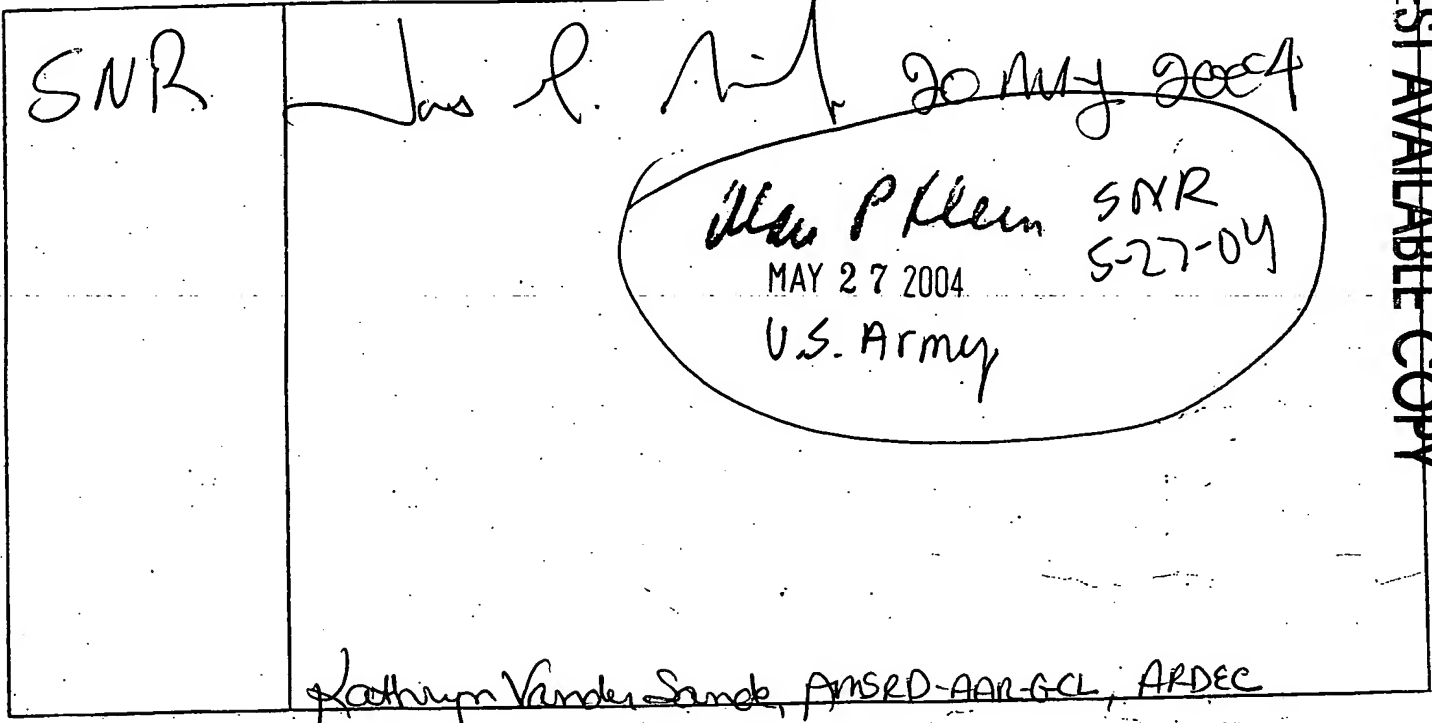 SNR
20 May 2004
P Klein SNR
5-27-04
MAY 27 2004
U.S. Army
Kathryn Vander Sande, AMSRD-AAR-GCL, ARDEC
EST AVAILABLE COPY